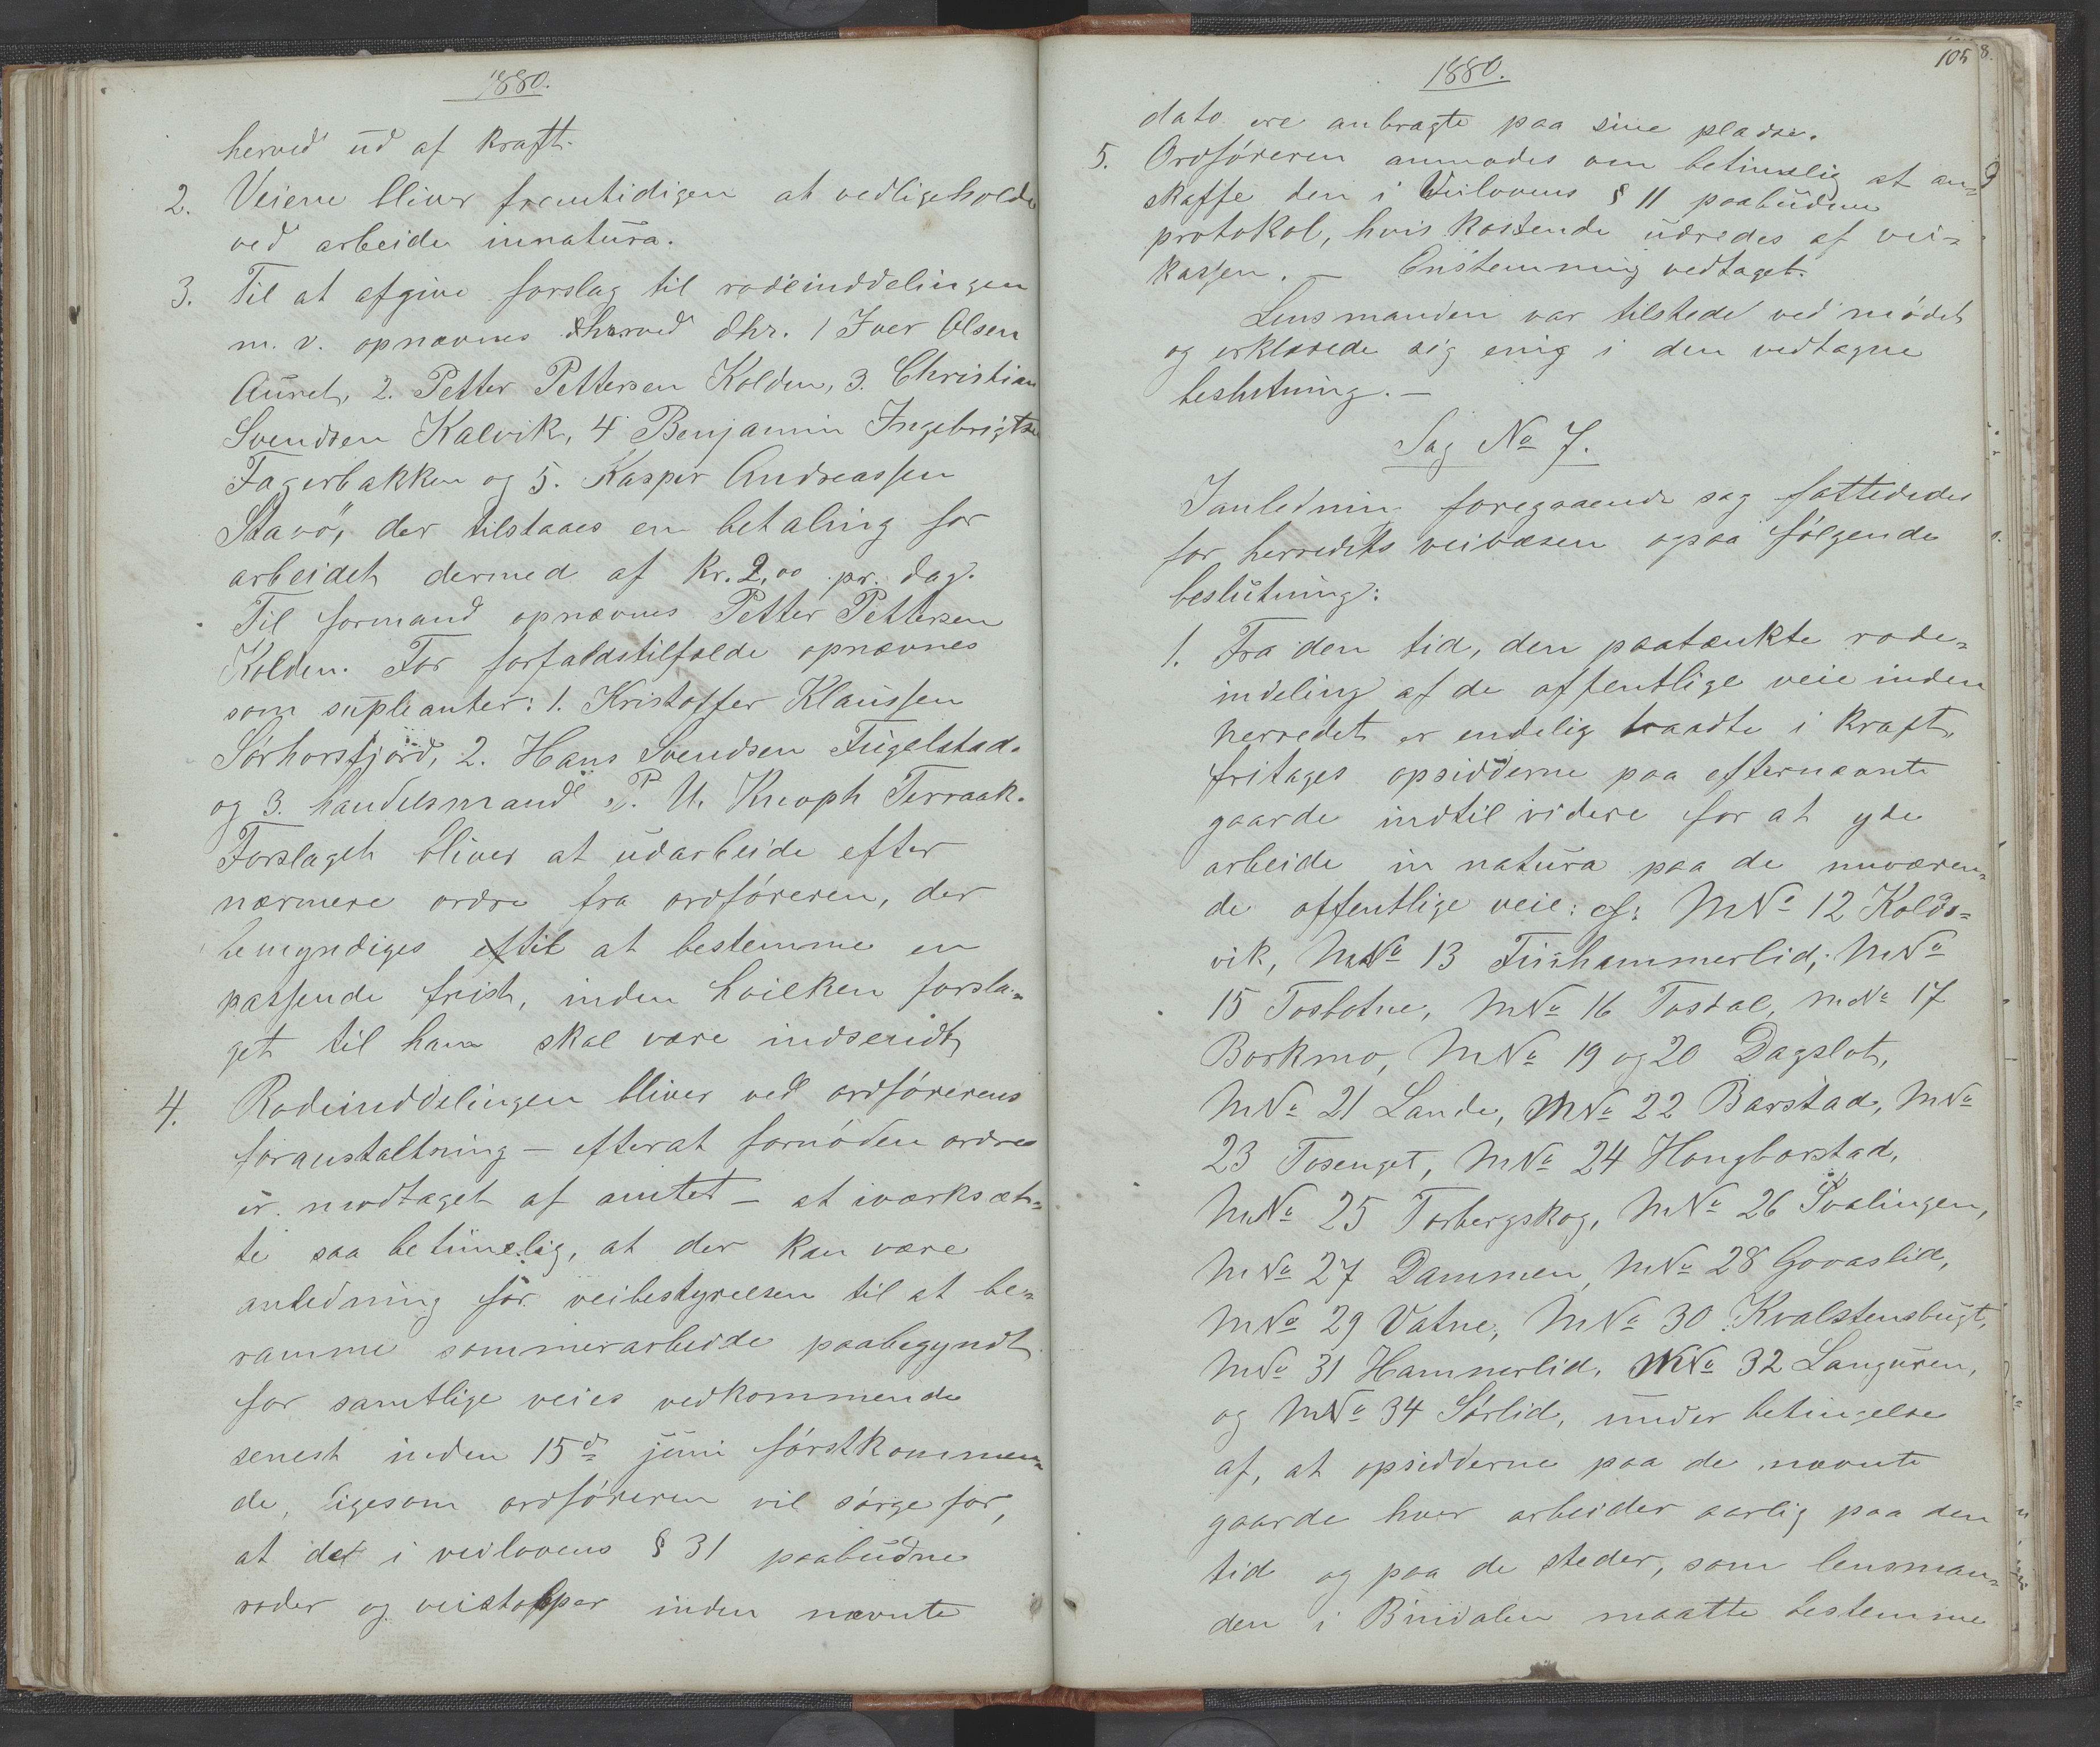 1880.
herved ud af kraft.
2. Veiene bliver fremtidigen at vedligeholde
ved arbeide innatura.
3. Til at afgive forslag til rodeinddelingen
m. v. opnævnes herved dhr. 1 Iver Olsen
Auret, 2. Petter Pettersen Kolden, 3. Christian
Svendsen Kalvik, 4 Benjamin Ingebrigtsen
Fagerbakken og 5. Kasper Andreassen
Stavö, der tilstaaes en betaling for
arbeidet dermed af kr. 2,00 pr. dag.
Til formand opnævnes Petter Pettersen
Kolden. For forfaldstilfælde opnævnes
som supleanter: 1. Kristoffer Klaussen
Sørhorsfjord, 2. Hans Svendsen Fugelstad.
og 3. handelsmand P. U. Knoph Terraak.
Forslaget bliver at udarbeide efter
nærmere ordre fra ordføreren, der
bemyndiges til at bestemme en
passende frist, inden hvilken forsla-
get til ham skal være indsendt,
4. Rodeinddelingen bliver ved ordførerens
foranstaltning - efterat fornøden ordres
er modtaget af amtet - at iværksæt-
te saa betimelig, at der kan være
anledning for veibestyrelsen til at be-
ramme sommerarbeide paabegyndt
for samtlige veies vedkommende
senest inden 15d juni førstkommen-
de, ligesom ordføreren vil sørge for,
at de i veilovens § 31 paabudne
roder og veistolper inden nævnte
105 8.
1880.
dato ere anbragte paa sine pladse.
5. Ordføreren anmodes om betimelig at an-
skaffe den i Veilovens § 11 paabudne
protokol, hvis kostende udredes af vei-
kassen. - Enstemmig vedtaget.
Lensmanden var tilstede ved mødet
og erklærede sig enig i den vedtagne
beslutning. -
Sag No 7.
Ianledning foregaaende sag fattedes
for herredets veivæsen ogsaa følgende
beslutning:
1. Fra den tid, den paatænkte rode-
indeling af de offentlige veie inden
herredet er endelig traadte i kraft,
fritages opsidderne paa efternævnte
gaarde indtil videre for at yde
arbeide in natura paa de nuværen-
de offentlige veie: cf: MNo 12 Kolds-
vik, MNo 13 Fushammerlid, MNo
15 Tosbotne, MNo 16 Tosdal, MNo 17
Borkmo, MNo 19 og 20 Dagslot,
MNo 21 Lande, MNo 22 Barstad, MNo
23 Tosenget, MNo 24 Hongborstad,
MNo 25 Torbergskog, MNo 26 Svalingen,
MNo 27 Dammen, MNo 28 Govaslid,
MNo 29 Vatne, MNo 30 Kvalstensbugt,
MNo 31 Hammerlid, MNo 32 Languren,
og MNo 34 Sørlid, under betingelse
af, at opsidderne paa de nævnte
gaarde hver arbeider aarlig paa den
tid og paa de steder, som lensman-
den i Bindalen maatte bestemme